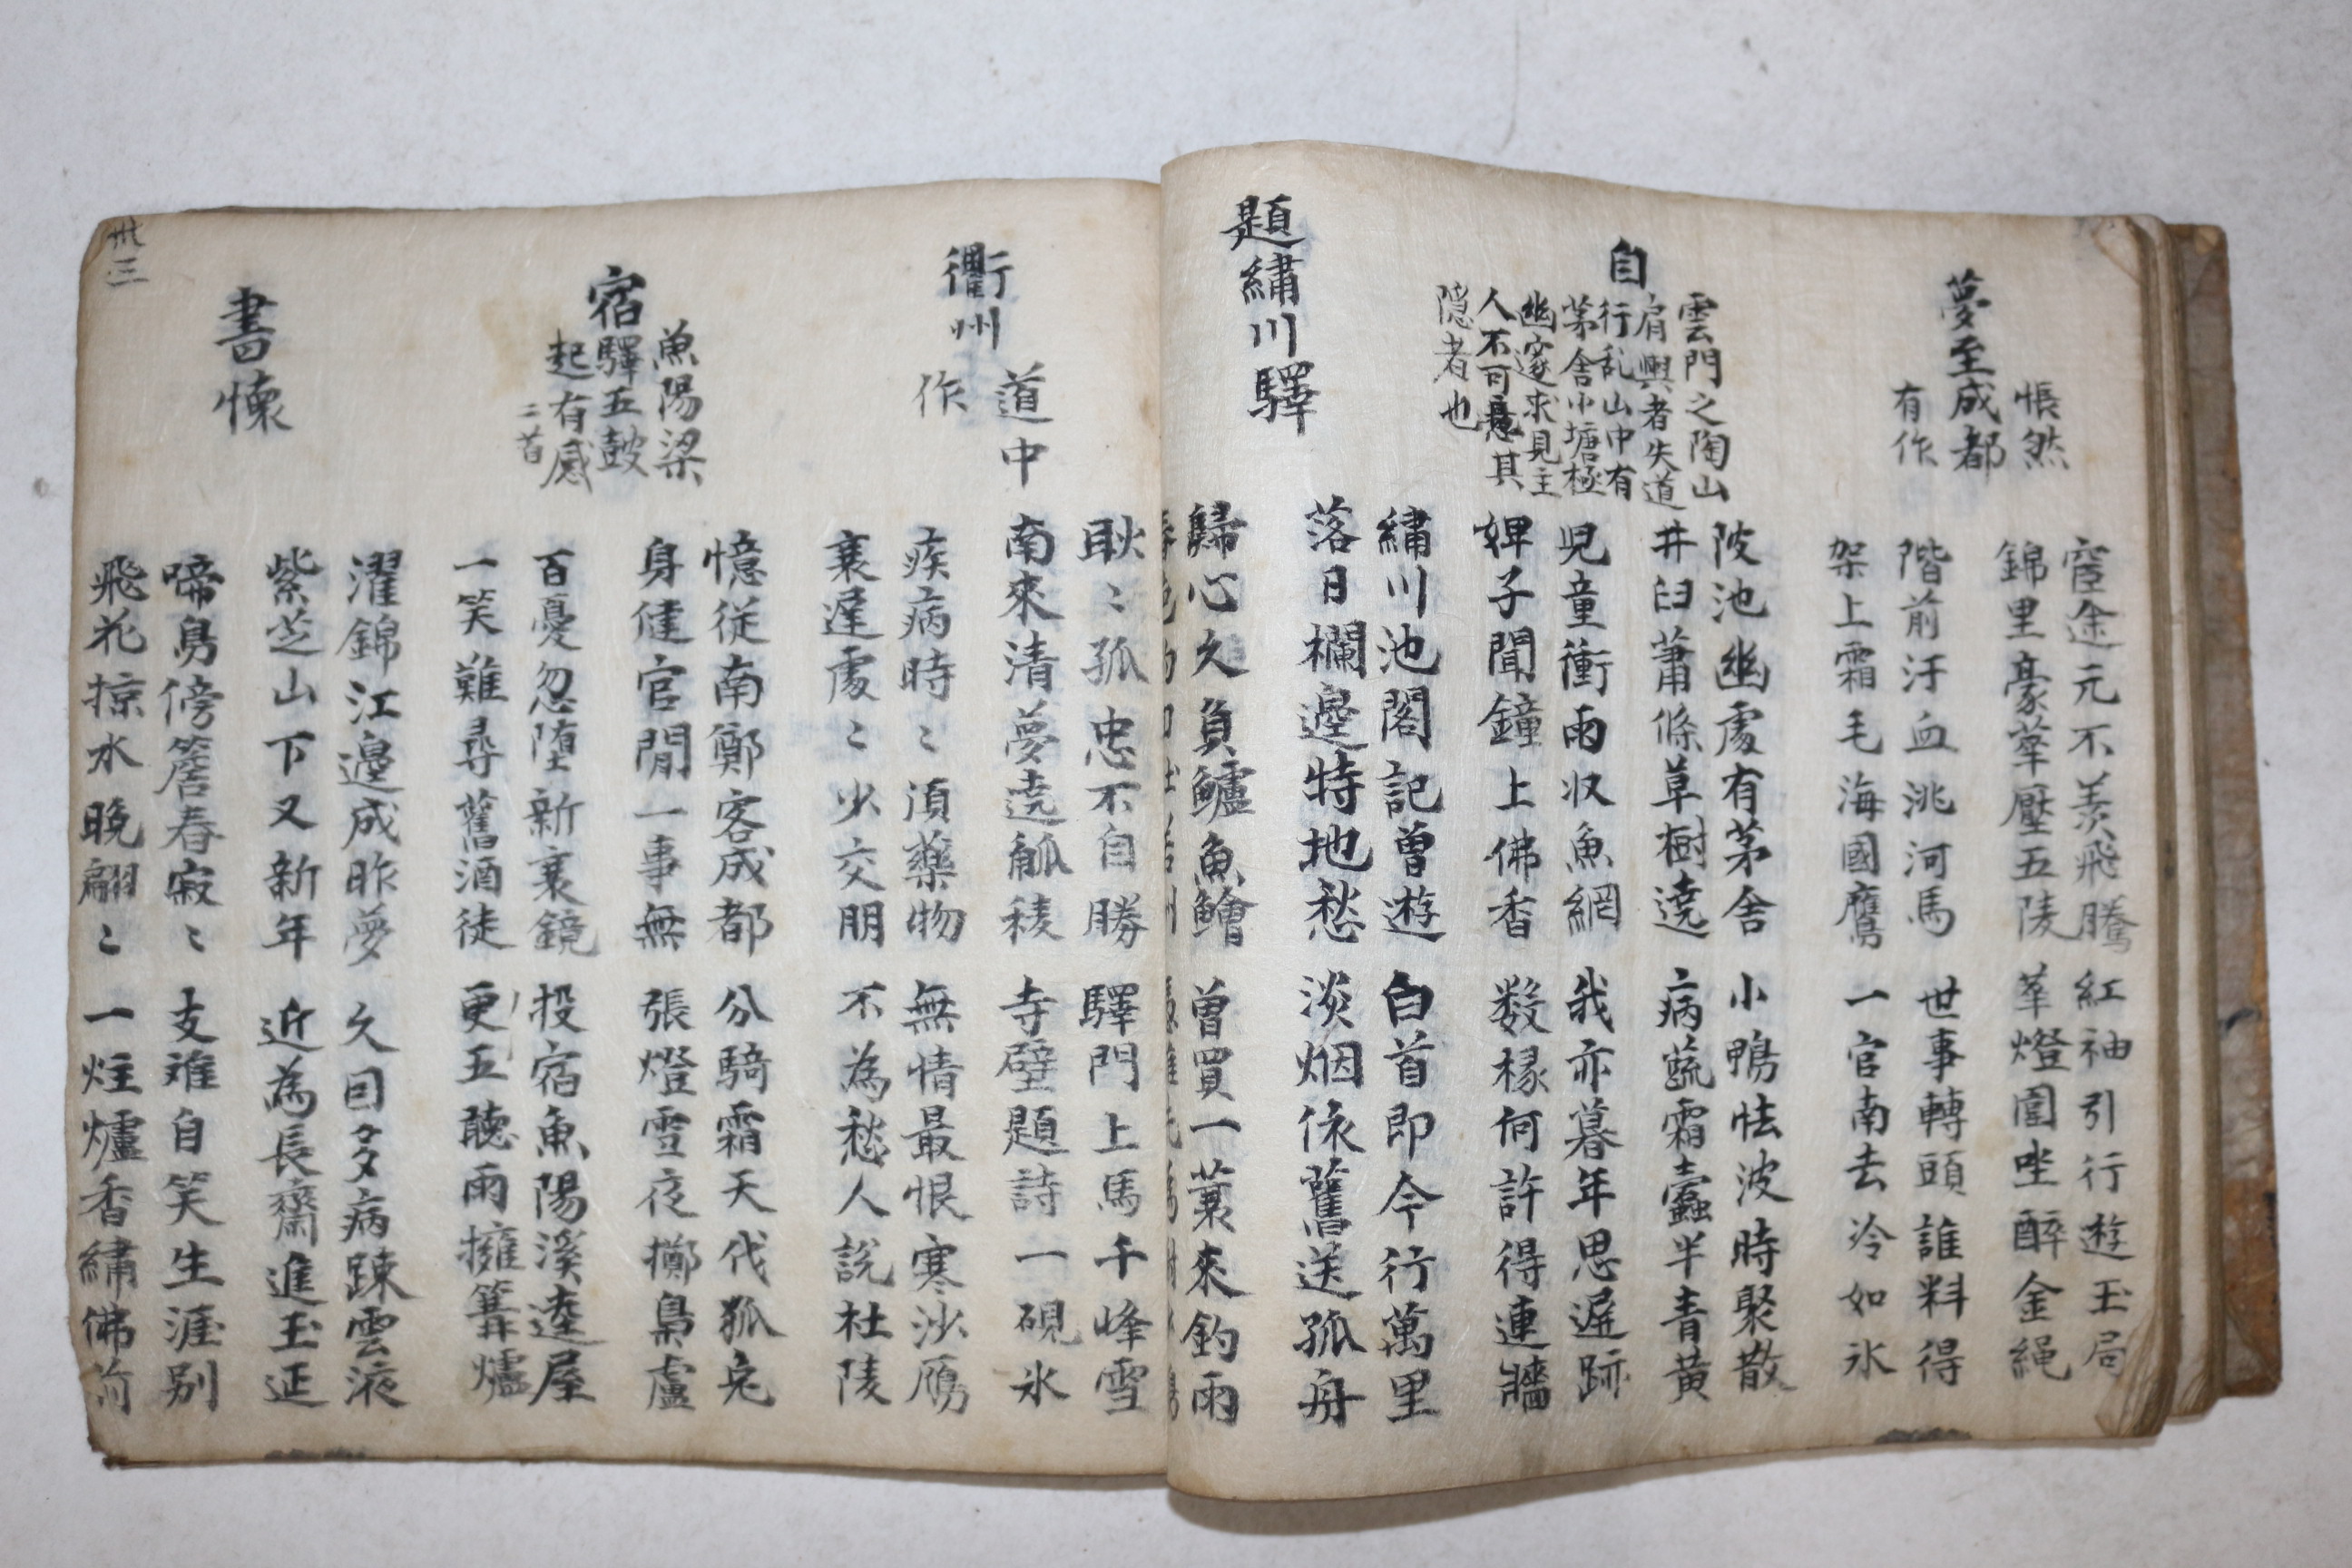 夢至成都
悵然
有作
宦途元不羡飛騰 紅袖引行遊玉局
錦里豪華壓五陵 華燈圍坐醉金繩
階前汗血洮河馬 世事轉頭誰料得
架上霜毛海國鷹 一官南去冷如氷
自
雲門之陶山
肩輿者失道
行乱山中有
茅舍小塘極
幽邃求見主
人不可意其
隠者也
陂池幽處有茅舍 小鴨怯波時聚散
井臼蕭條草樹遶 病蔬霜蠹半青黃
児童衝雨収魚網 我亦暮年思遯跡
婢子聞鐘上佛香 数椽何許得連牆
題繡川驛
繡川池閣記曾遊 白首即今行萬里
落日欄邊特地愁 淡烟依舊送孤舟
歸心久負鱸魚鱠 曾買一蓑來釣雨
衢州
道中
作
耿〻孤忠不自勝 驛門上馬千峰雪
南來清夢遶觚稜 寺壁題詩一硯氷
疾病時〻湏藥物 無情最恨寒沙鴈
衰遲處〻少交朋 不為愁人說杜陵
宿
魚陽梁
驛五鼓
起有感
二首
憶従南鄭客成都 分騎霜天伐狐兎
身健官閒一事無 張燈雪夜擲梟盧
百憂忽墮新衰鏡 投宿魚陽溪逺屋
一笑難尋舊酒徒 更五聽雨擁篝爐
書懐
濯錦江邊成昨夢 久因多病踈雲液
紫芝山下又新年 近為長齋進玉延
啼鳥傍簷春寂〻 支離自笑生涯別
飛花掠水晚翩〻 一炷爐香繡佛前
卅三